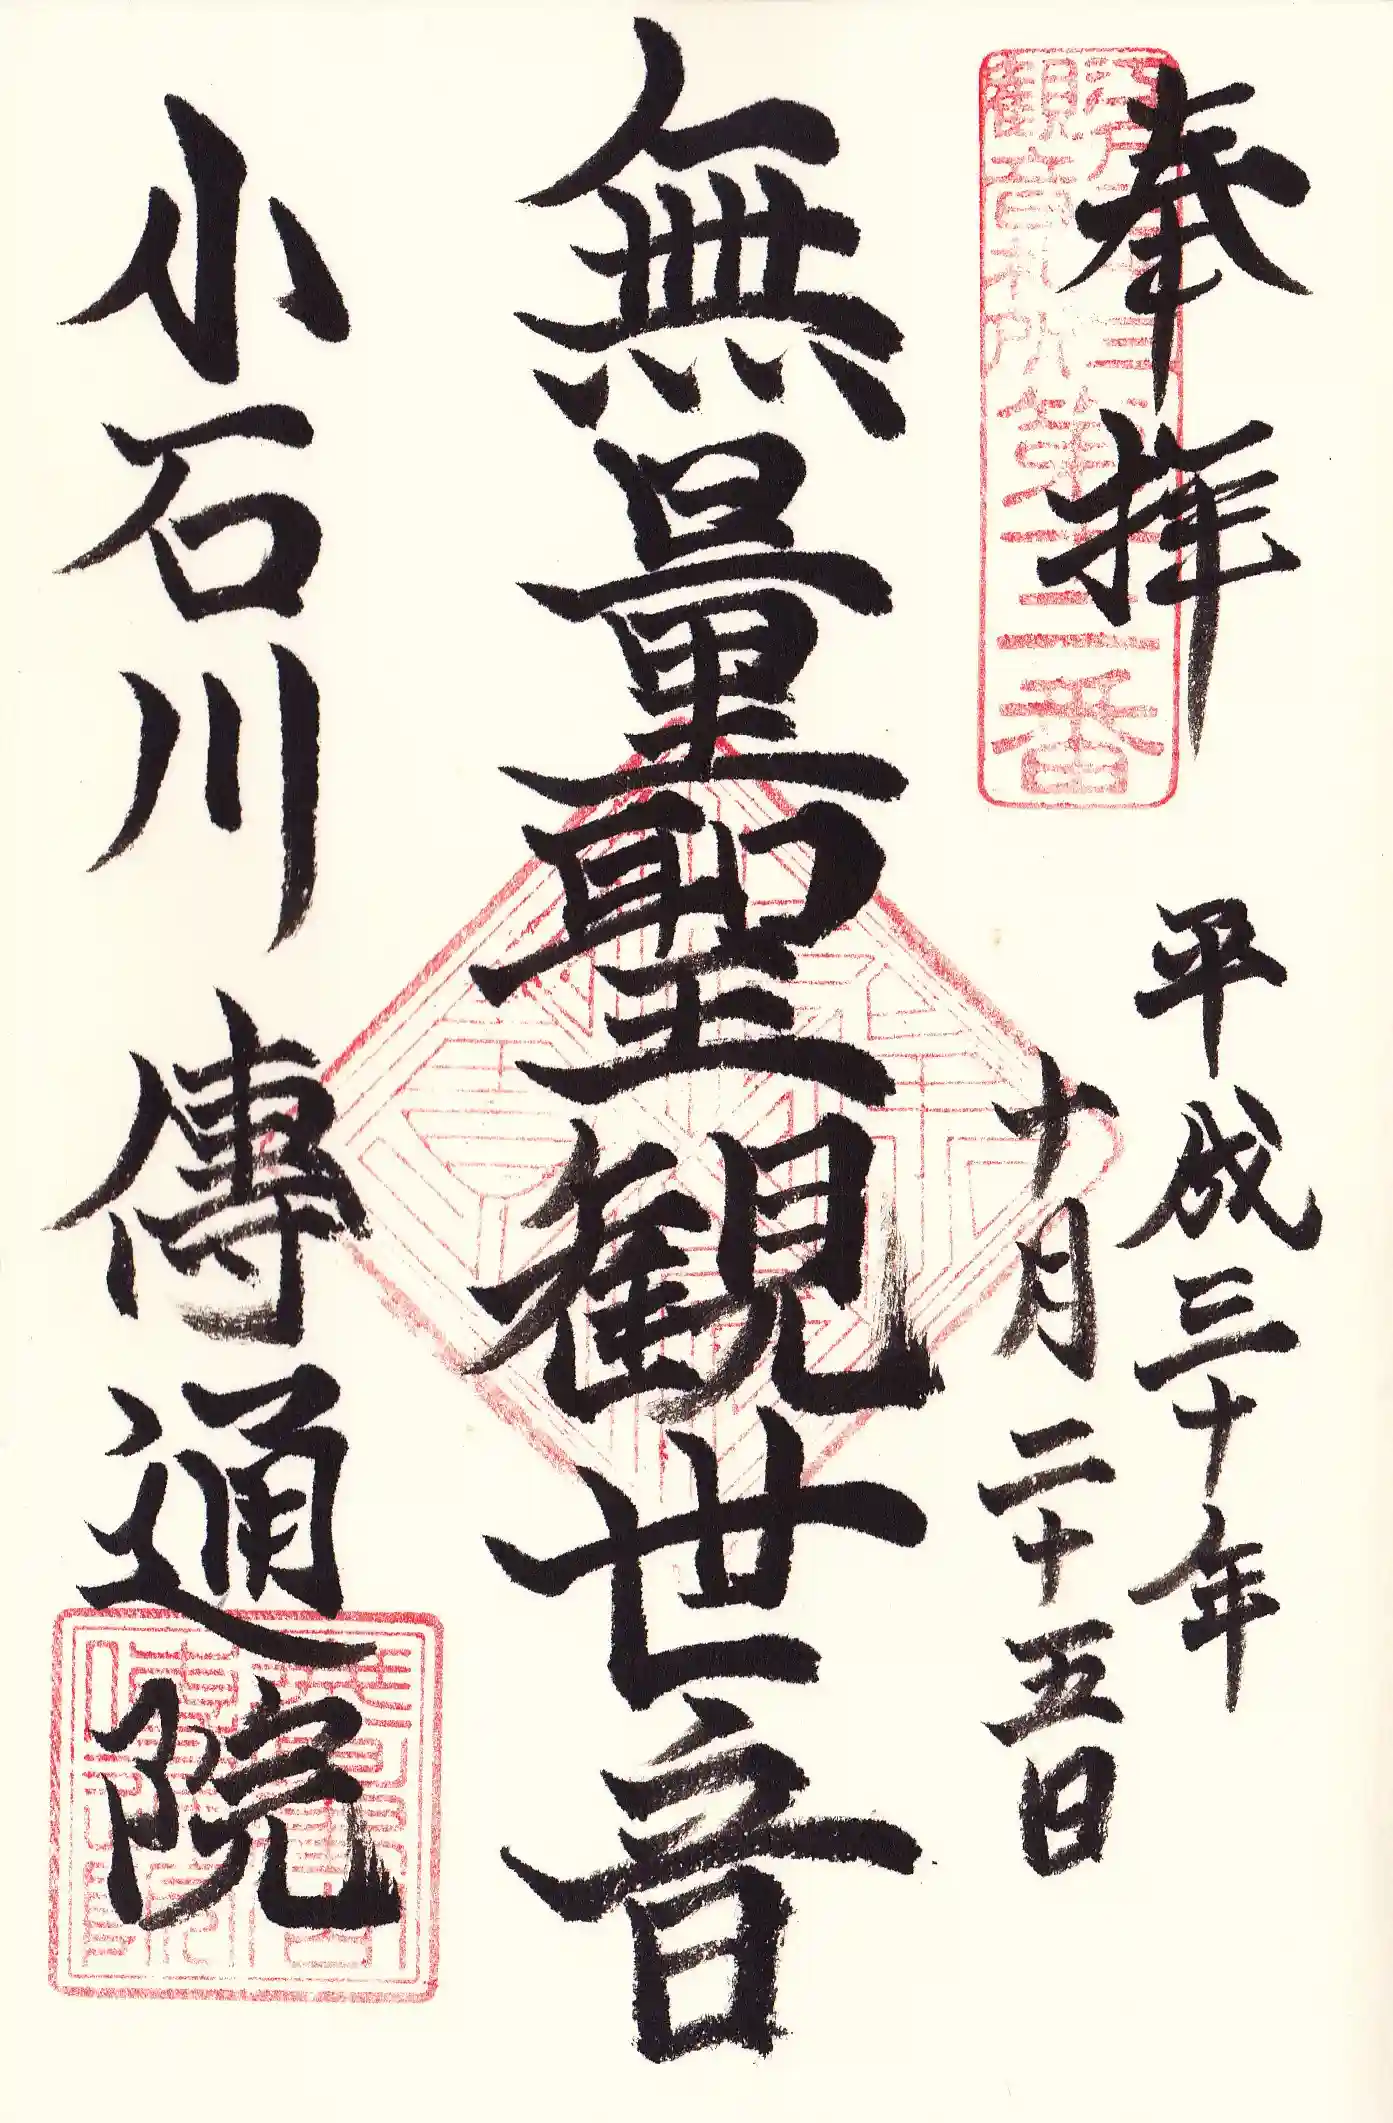 奉拝
江戸三十三
観音札所
第十二番
平成三十年
十月二十五日
無量聖観世音
小石川 傳通院